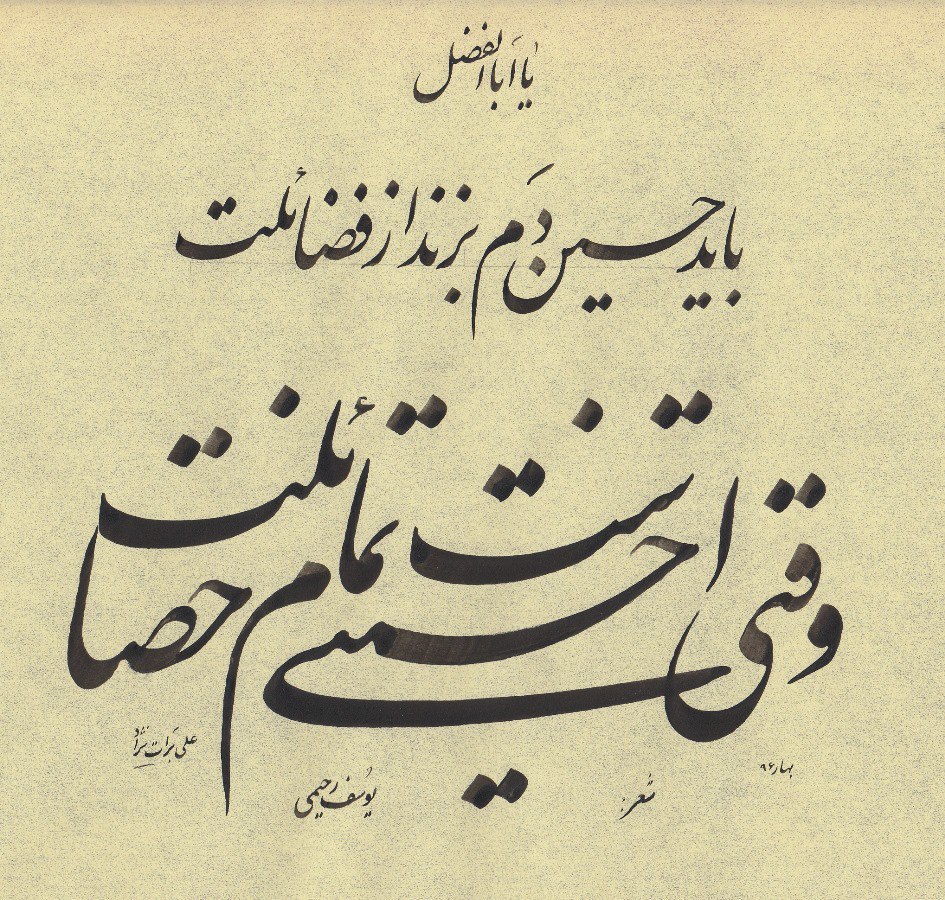 یا اَباالفضل
باید حسین دَم بزند از فضائلت
وقتی حسینی است تمام خصائلت
بهار ۹۶
شعر: یوسف رحیمی
علی برات نژاد